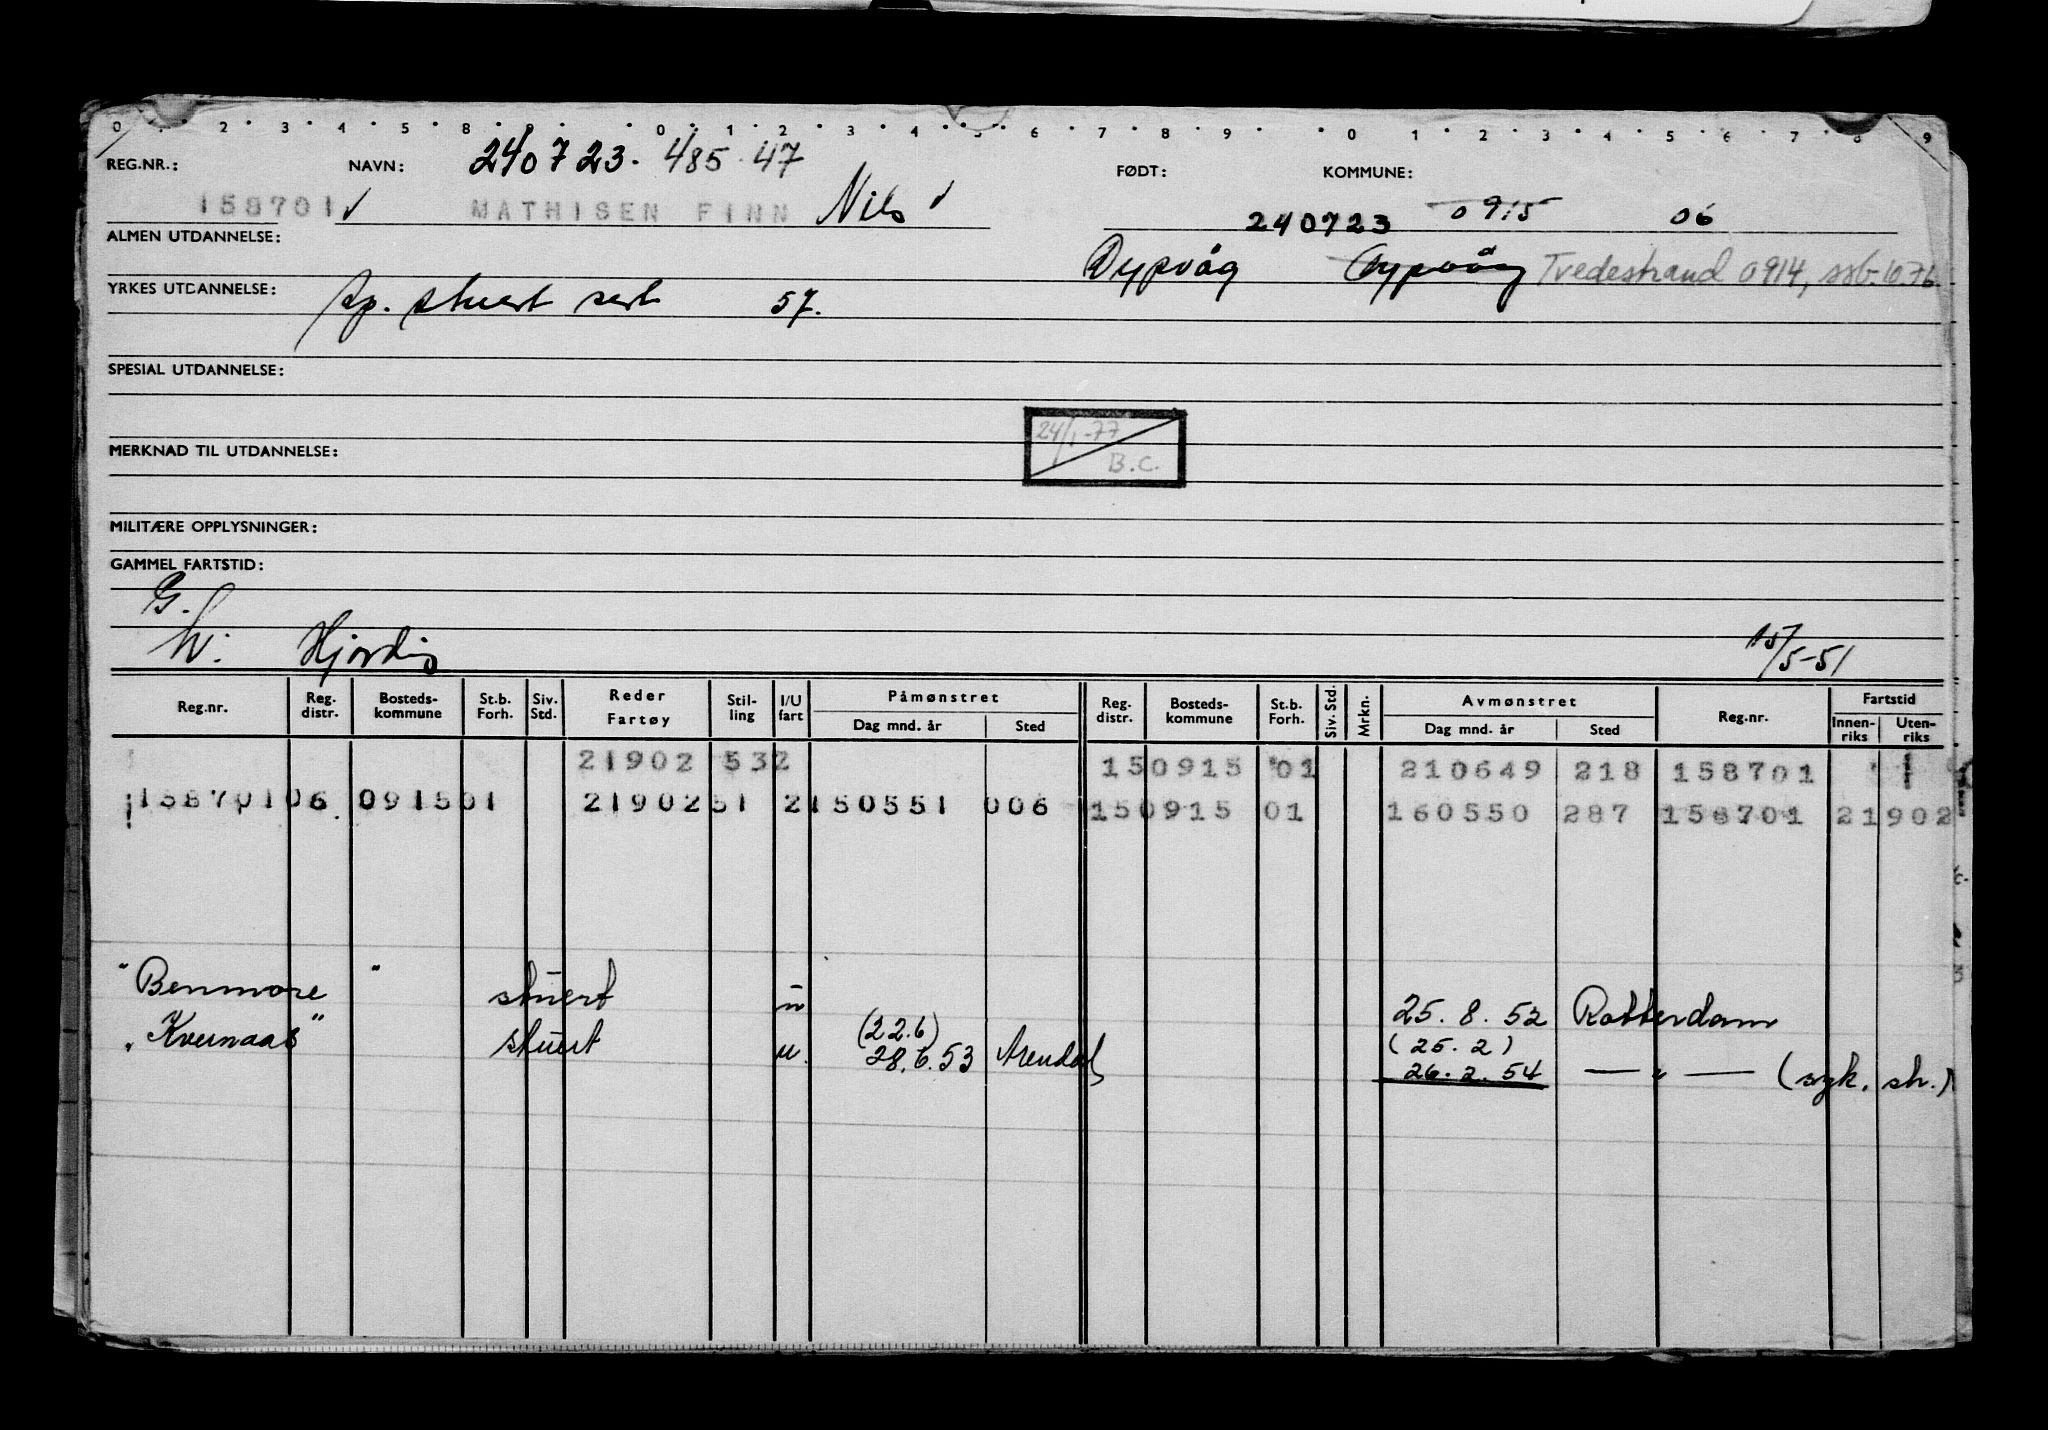 0 2 3 4 5 8 9 0 1 2 3 4 5 6 7 8 9 0 1 2 3 4 5 6 7 8 9
REG.NR.: NAVN: 240723. 485 47 FØDT: KOMMUNE:
158701 √ MATHISEN FINN Nils √ 240723 0915 06
ALMEN UTDANNELSE: Dypvåg Dypvåg Tvedestrand 0914, ssb. 10.76.
YRKES UTDANNELSE: Sp. stuert sert 57.
SPESIAL UTDANNELSE:
24/1-77
B.C.
MERKNAD TIL UTDANNELSE:
MILITÆRE OPPLYSNINGER:
GAMMEL FARTSTID:
G.
h: Hjørdis 15/5-51
Reg.nr. Reg. distr. Bosteds-kommune St.b. Forh. Siv. Std. Reder Fartøy Stil-ling I/U fart Påmønstret Dag mnd. år Sted Reg. distr. Bosteds-kommune St.b. Forh. Siv. Std. Mrkn. Avmønstret Dag mnd. år Sted Reg.nr. Fartstid Innen-riks Uten-riks
21902 532 150915 01 210649 218 158701
158701 06 091501 2190251 2150551 006 150915 01 160550 287 158701 21902
"Benmore" stuert u 25.8.52 Rotterdam
(22.6) (25.2)
"Kvernaas" stuert u. 28.6.53 Arendal 26.2.54 — " — (syk. sh.)